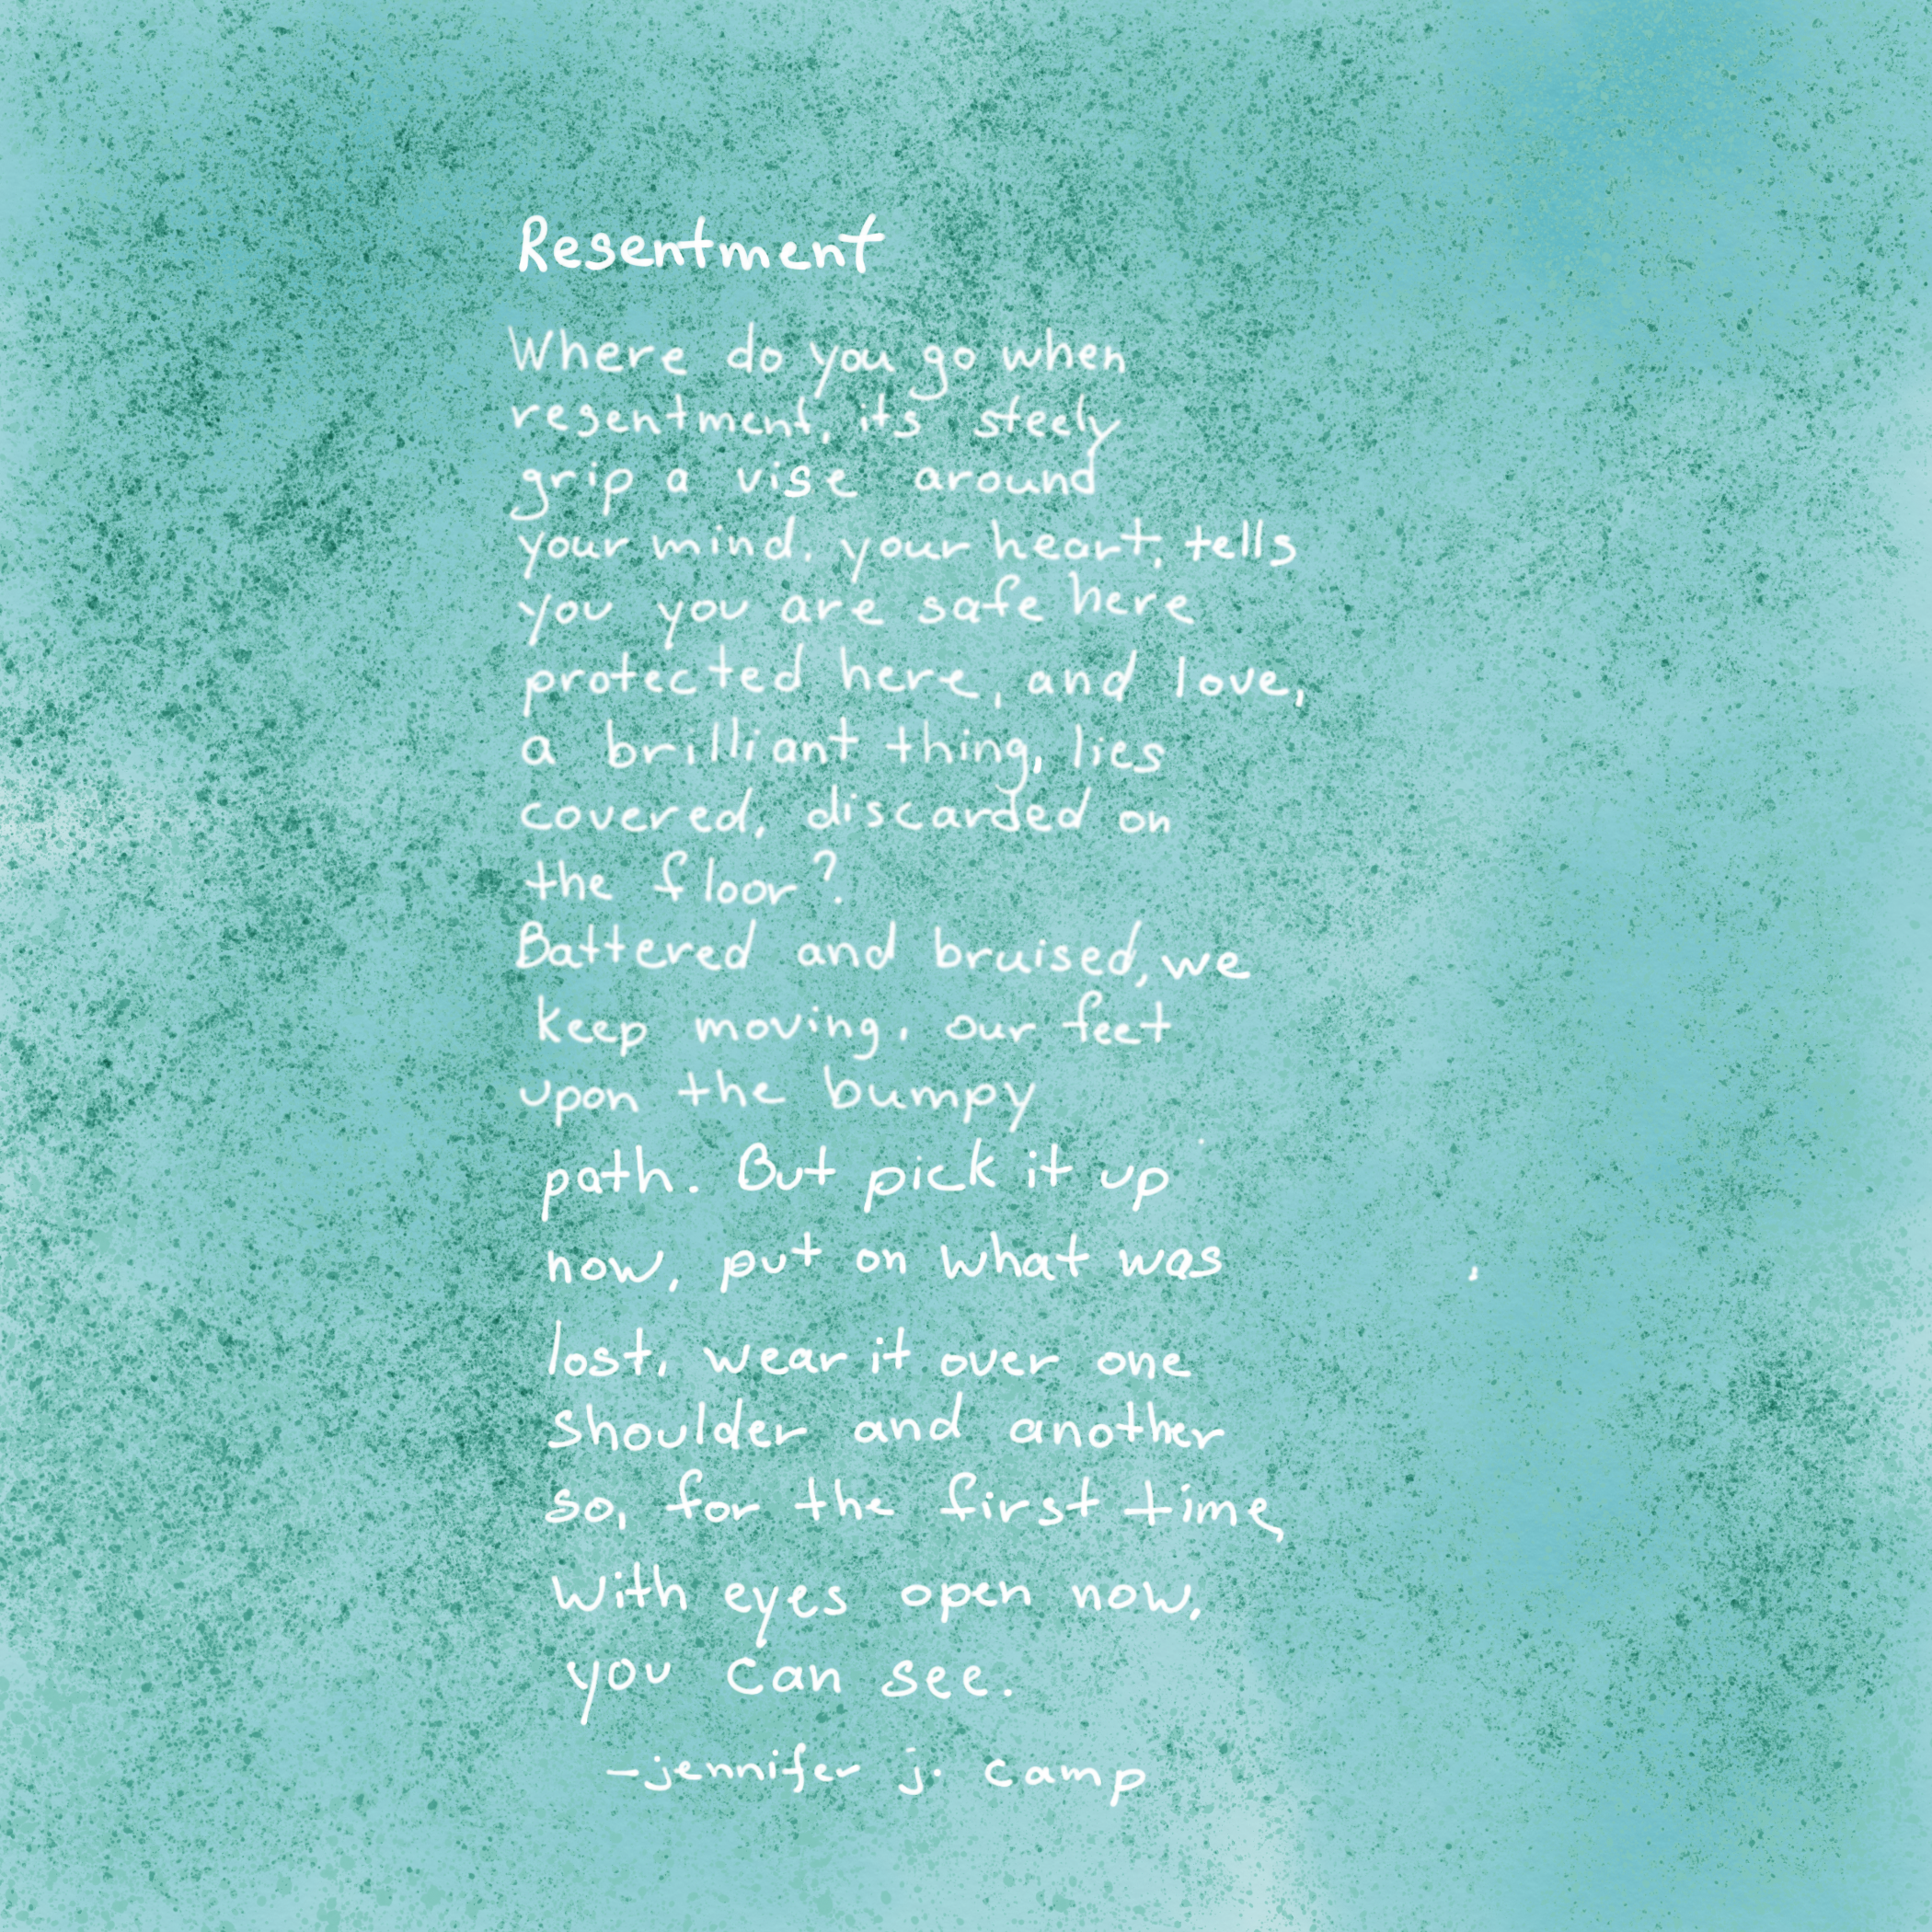 Resentment
Where do you go when
resentment, its steely
grip a vise around
your mind, your heart, tells
you you are safe here
protected here, and love,
a brilliant thing, lies
covered, discarded on
the floor?
Battered and bruised, we
keep moving, our feet
upon the bumpy
path. But pick it up
now, put on what was
lost, wear it over one
shoulder and another
so, for the first time,
with eyes open now,
you can see.
–jennifer j. camp